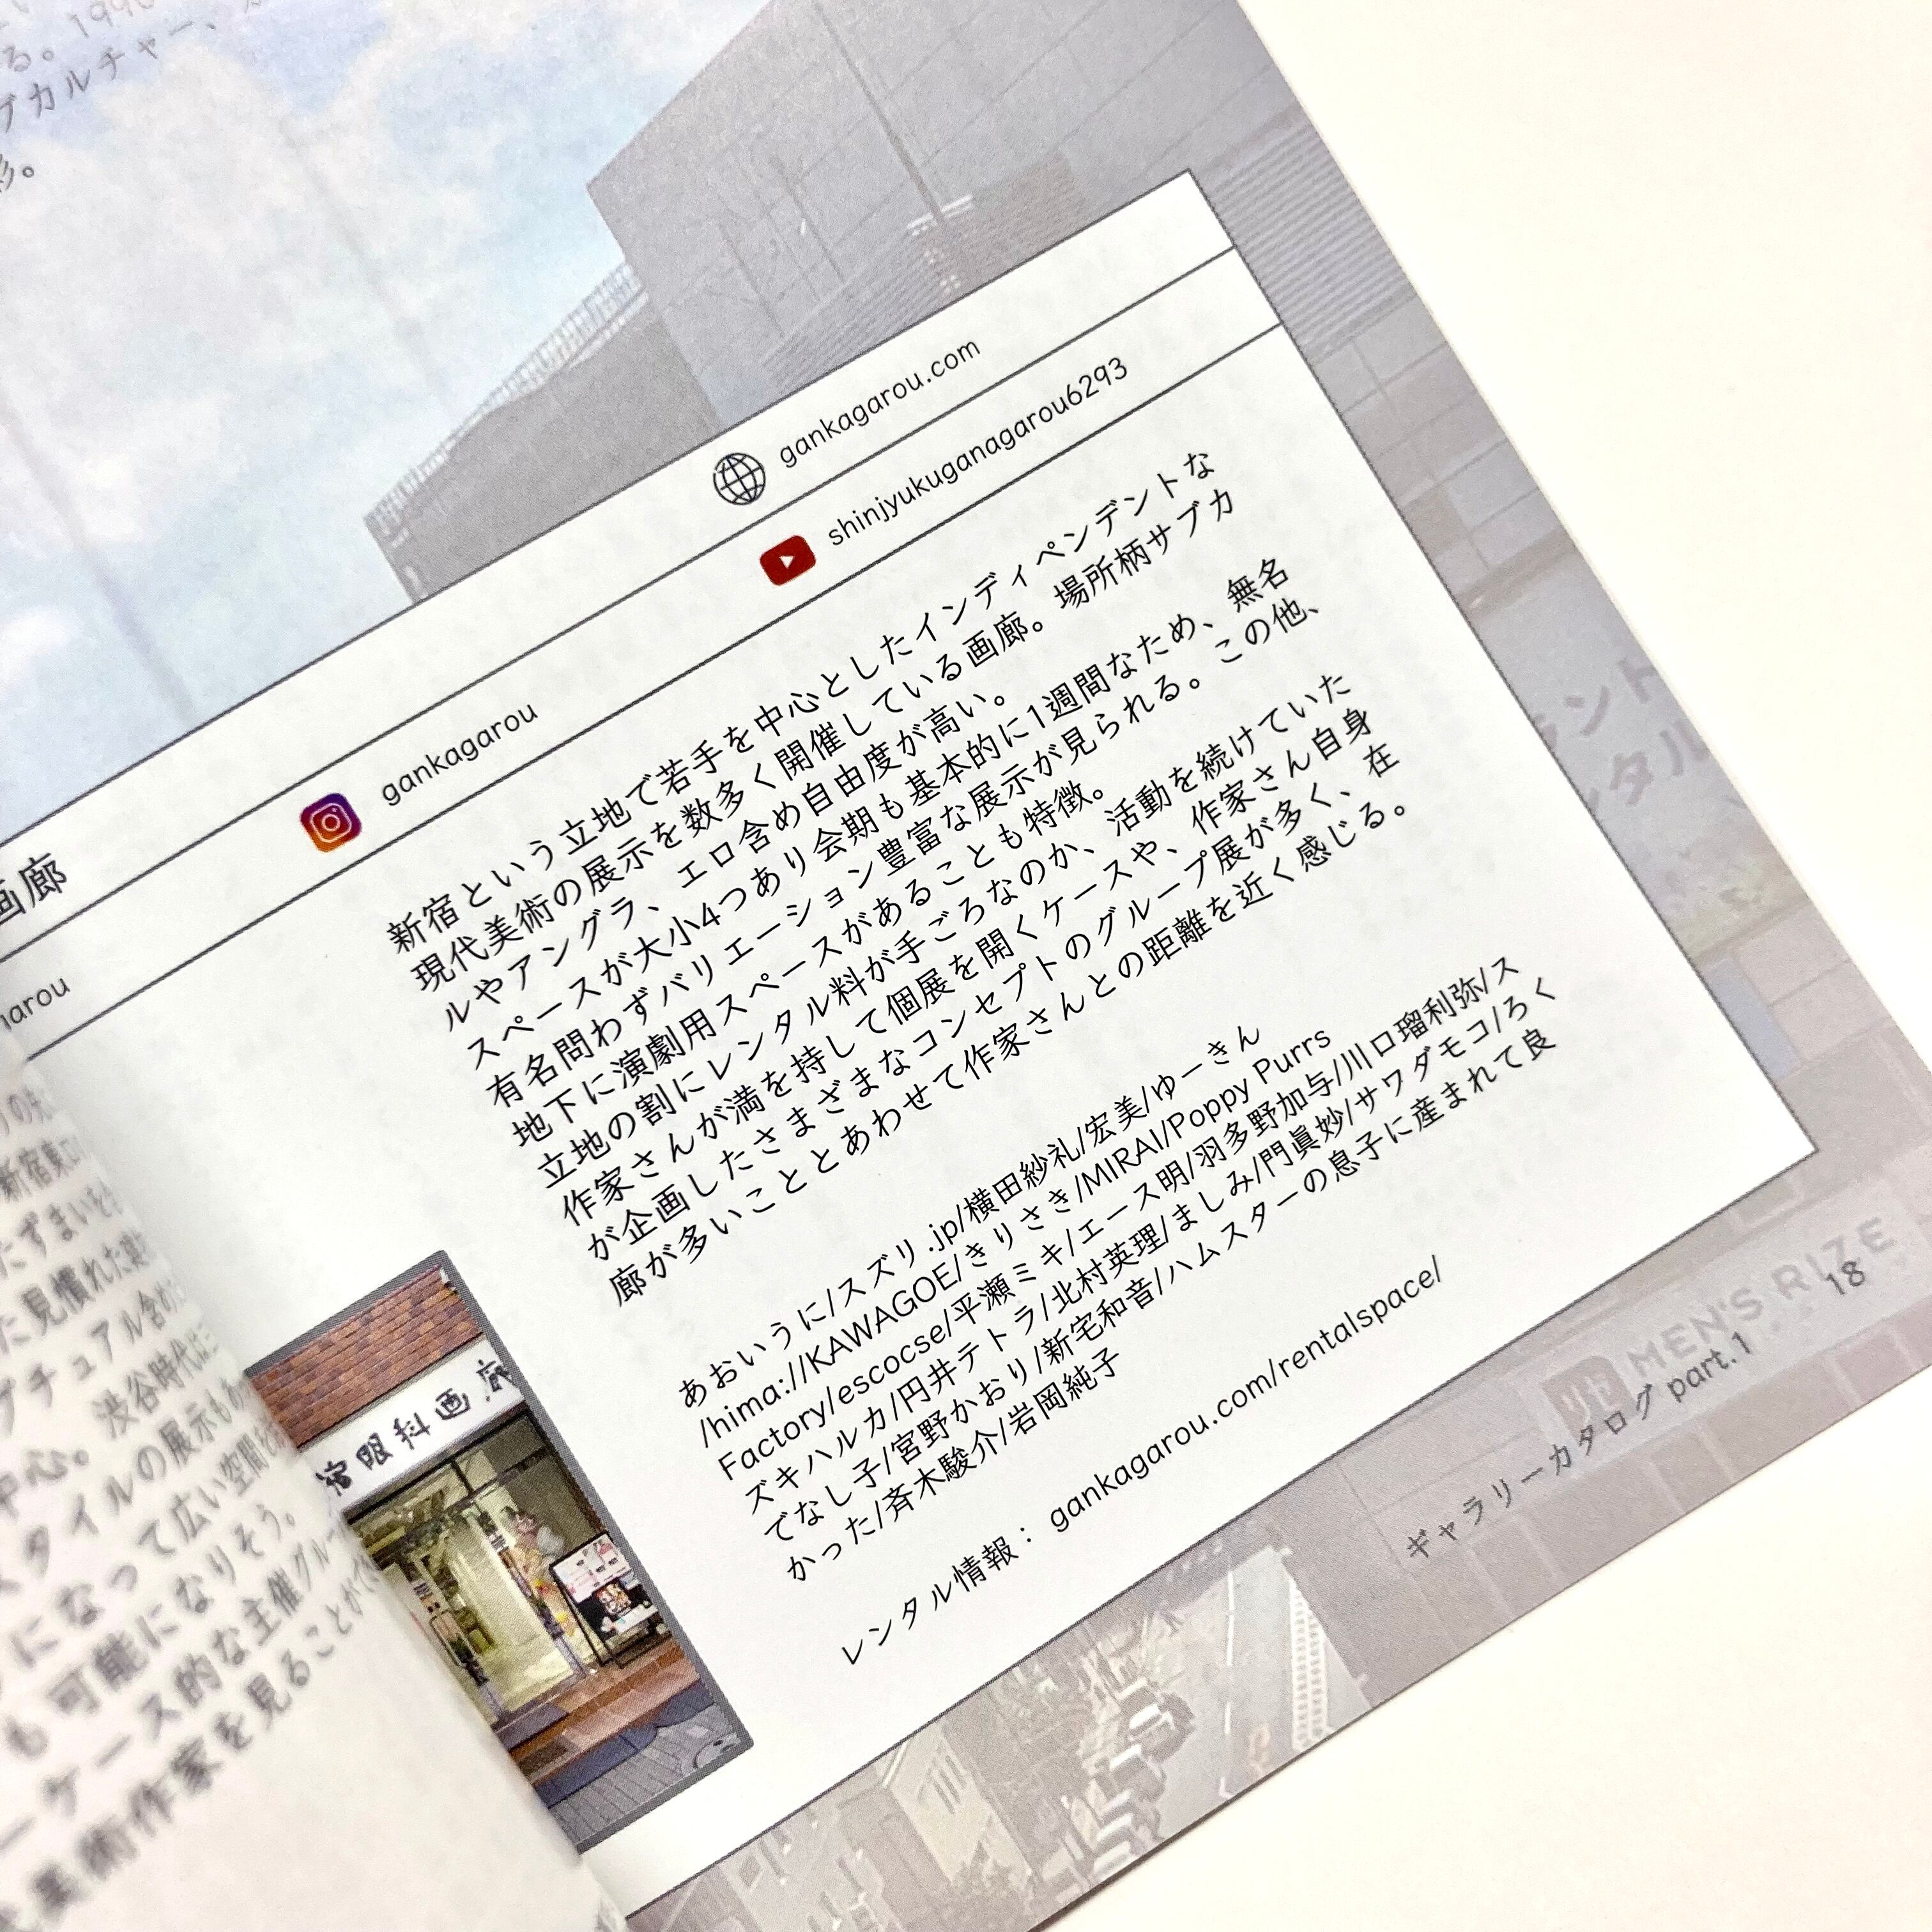 る。1990
ブカルチャー、
彩。
画廊
gankagarou.com
gankagarou
shinjyukuganagarou6293
新宿という立地で若手を中心としたインディペンデントな
現代美術の展示を数多く開催している画廊。場所柄サブカ
ルやアングラ、エロ含め自由度が高い。
スペースが大小4つあり会期も基本的に1週間なため、無名
有名問わずバリエーション豊富な展示が見られる。この他、
地下に演劇用スペースがあることも特徴。
立地の割にレンタル料が手ごろなのか、活動を続けていた
作家さんが満を持して個展を開くケースや、作家さん自身
が企画したさまざまなコンセプトのグループ展が多く、在
廊が多いこととあわせて作家さんとの距離を近く感じる。
あおいうに/スズリ.jp/横田紗礼/宏美/ゆーきん
/hima://KAWAGOE/きりさき/MIRAI/Poppy Purrs
Factory/escocse/平瀬ミキ/エース明/羽多野加与/川口瑠利弥/ス
ズキハルカ/円井テトラ/北村英理/ましみ/門眞妙/サワダモコ/ろく
でなし子/宮野かおり/新宅和音/ハムスターの息子に産まれて良
かった/斉木駿介/岩岡純子
レンタル情報： gankagarou.com/rentalspace/
宿眼科画廊
arou
新宿東口
たずまいを
た見慣れた
プチュアル含め
中心。渋谷時代は
スタイルの展示も
になって広い空間を
も可能になりそう。
ーケース的な主催グルー
美術作家を見ることがで
ント
ンタル
MEN'S RIZE
ギャラリーカタログ part.1
18